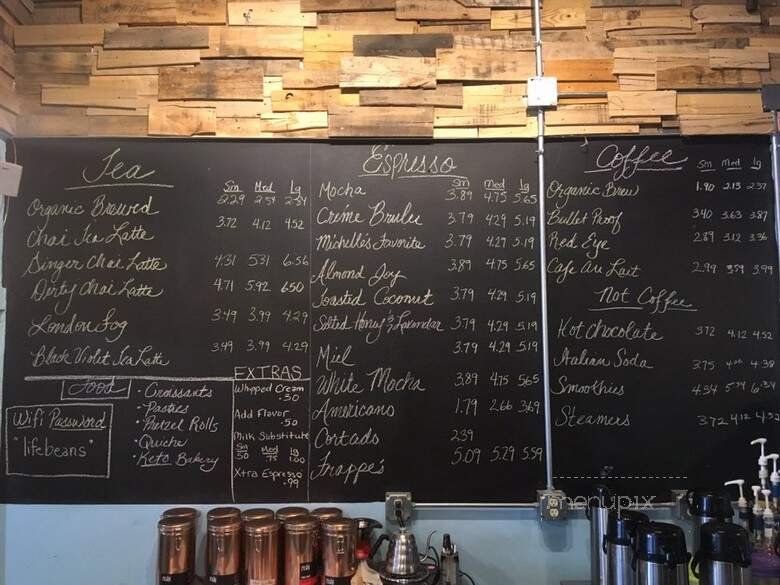 Tea
Sm Med Lg
Organic Brewed 2.29 2.54 2.84
Chai Tea Latte 3.72 4.12 4.52
Ginger Chai Latte 4.31 5.31 6.56
Dirty Chai Latte 4.71 5.92 6.50
London Fog 3.49 3.99 4.29
Black Violet Tea Latte 3.49 3.99 4.29
Food
• Croissants
• Pasties
• Pretzel Rolls
• Quiche
• Keto Bakery
Wifi Password
"lifebeans"
EXTRAS
Whipped Cream
.50
Add Flavor
.50
Milk Substitute
Sm Med Lg
50 .75 1.00
Xtra Espresso
.99
Espresso
Sm Med Lg
Mocha 3.89 4.75 5.65
Créme Brulee 3.79 4.29 5.19
Michelle's Favorite 3.79 4.29 5.19
Almond Joy 3.89 4.75 5.65
Toasted Coconut 3.79 4.29 5.19
Salted Honey & Lavendar 3.79 4.29 5.19
Miel 3.79 4.29 5.19
White Mocha 3.89 4.75 5.65
Americano 1.79 2.66 3.69
Cortado 2.39
Frappe's 5.09 5.29 5.59
Coffee
Sm Med Lg
Organic Brew 1.90 2.13 2.37
Bullet Proof 3.40 3.63 3.87
Red Eye 2.89 3.12 3.36
Cafe Au Lait 2.99 3.59 3.99
Not Coffee
Hot Chocolate 3.72 4.12 4.52
Italian Soda 3.75 4.00 4.38
Smoothies 4.54 5.74 6.34
Steamers 3.72 4.12 4.52
menupix